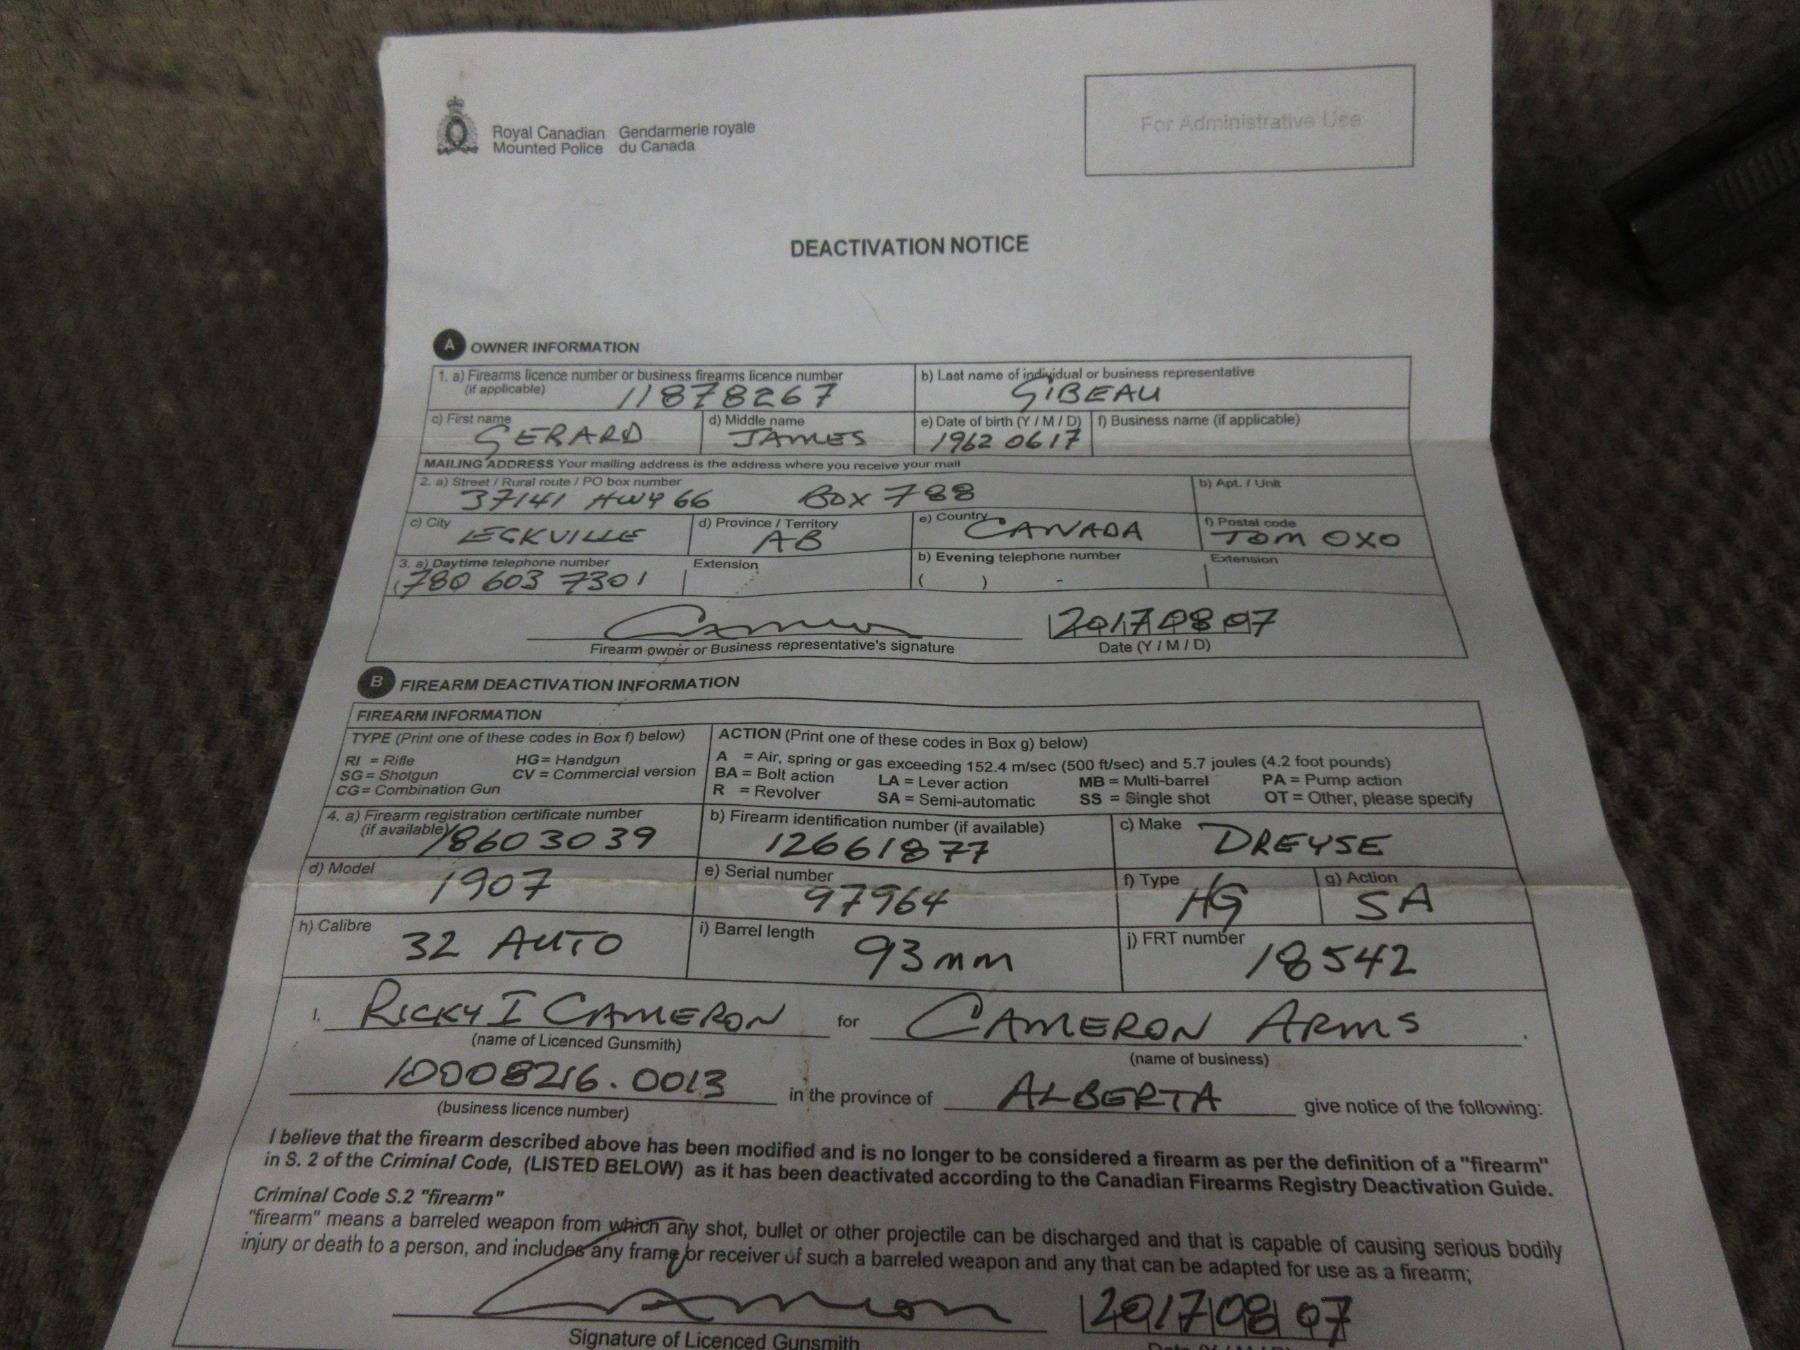 Royal Canadian Gendarmerie royale
Mounted Police du Canada
For Administrative Use
DEACTIVATION NOTICE
A OWNER INFORMATION
1. a) Firearms licence number or business firearms licence number b) Last name of individual or business representative
(if applicable) 11878267 GIBEAU
c) First name d) Middle name e) Date of birth (Y / M / D) f) Business name (if applicable)
GERARD JAMES 1962 06 17
MAILING ADDRESS Your mailing address is the address where you receive your mail
2. a) Street / Rural route / PO box number b) Apt. / Unit
37141 HWY 66 BOX 788
c) City d) Province / Territory e) Country f) Postal code
LECKVILLE AB CANADA T0M 0X0
3. a) Daytime telephone number Extension b) Evening telephone number Extension
(780 603 7301 ( ) -
2017 08 07
Firearm owner or Business representative's signature Date (Y / M / D)
B FIREARM DEACTIVATION INFORMATION
FIREARM INFORMATION
TYPE (Print one of these codes in Box f) below) ACTION (Print one of these codes in Box g) below)
RI = Rifle HG= Handgun A = Air, spring or gas exceeding 152.4 m/sec (500 ft/sec) and 5.7 joules (4.2 foot pounds)
SG = Shotgun CV = Commercial version BA = Bolt action LA = Lever action MB = Multi-barrel PA = Pump action
CG= Combination Gun R = Revolver SA = Semi-automatic SS = Single shot OT = Other, please specify
4. a) Firearm registration certificate number b) Firearm identification number (if available) c) Make
(if available) 18603039 12661877 DREYSE
d) Model e) Serial number f) Type g) Action
1907 97964 HG SA
h) Calibre i) Barrel length j) FRT number
32 AUTO 93mm 18542
I, RICKY I CAMERON for CAMERON ARMS .
(name of Licenced Gunsmith) (name of business)
10008216.0013 in the province of ALBERTA give notice of the following:
(business licence number)
I believe that the firearm described above has been modified and is no longer to be considered a firearm as per the definition of a "firearm"
in S. 2 of the Criminal Code, (LISTED BELOW) as it has been deactivated according to the Canadian Firearms Registry Deactivation Guide.
Criminal Code S.2 "firearm"
"firearm" means a barreled weapon from which any shot, bullet or other projectile can be discharged and that is capable of causing serious bodily
injury or death to a person, and includes any frame or receiver of such a barreled weapon and any that can be adapted for use as a firearm;
2017 08 07
Signature of Licenced Gunsmith